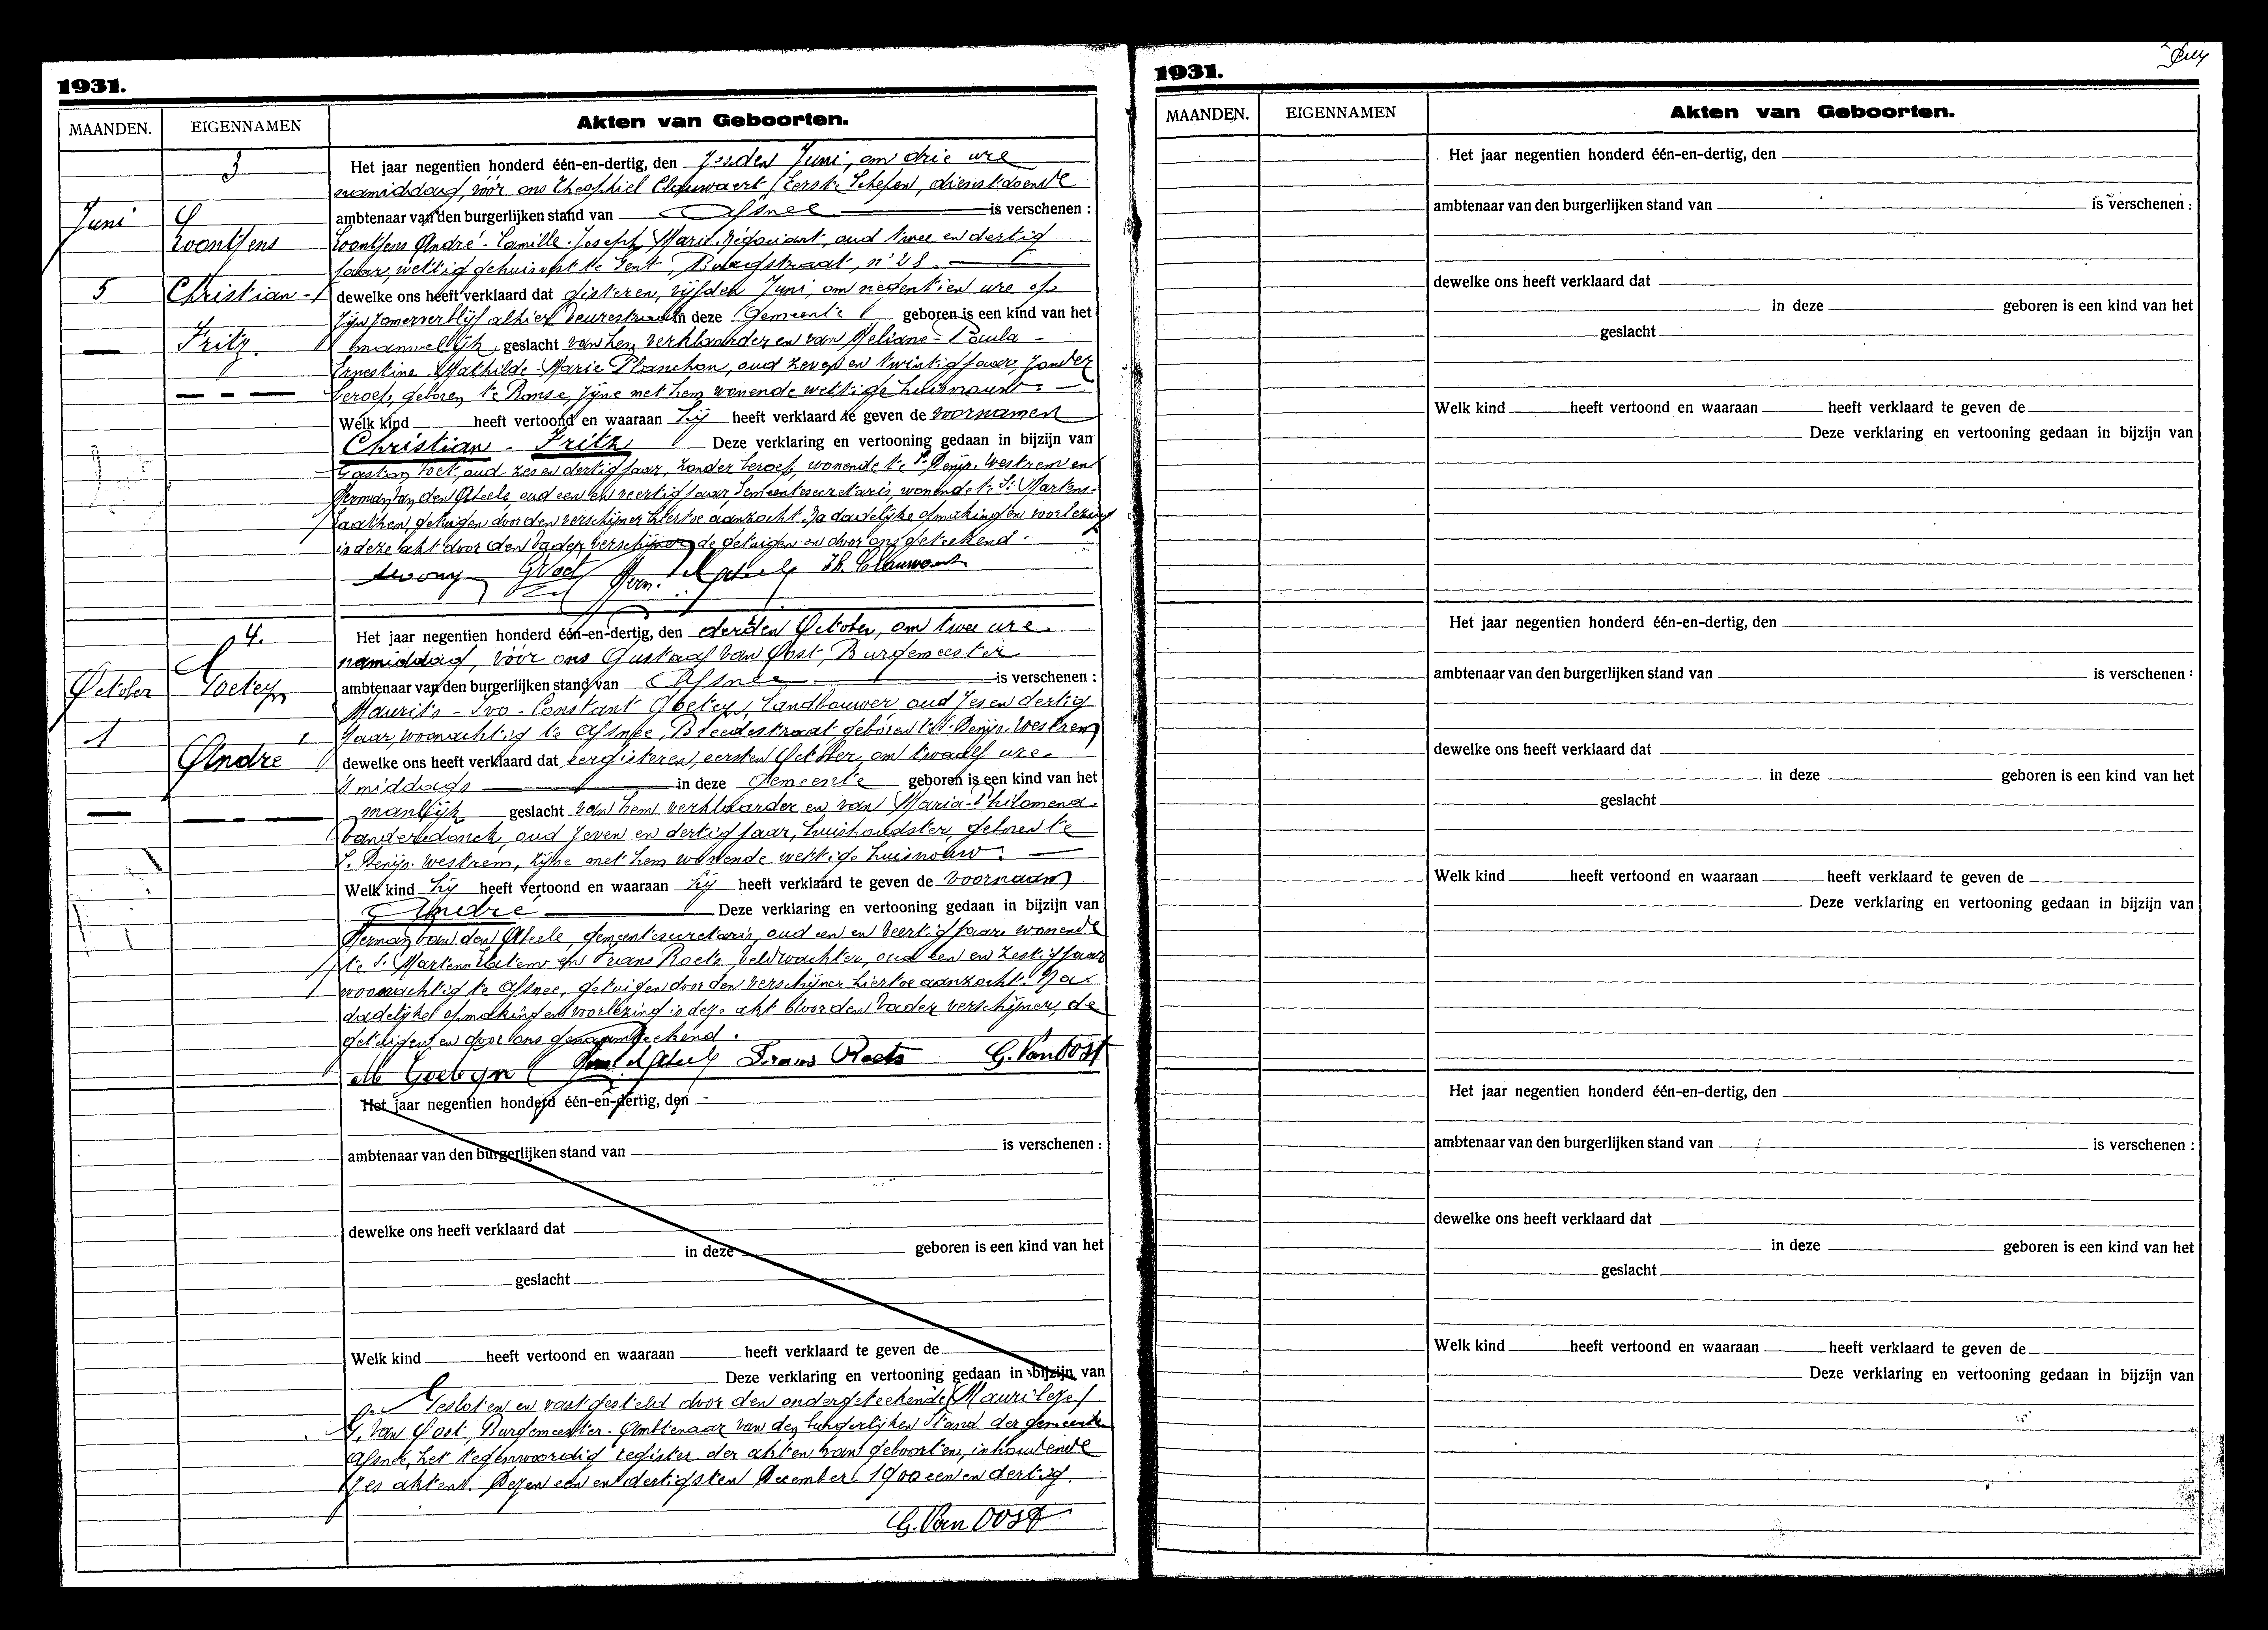 1931.
MAANDEN. EIGENNAMEN Akten van Geboorten.
3 Het jaar negentien honderd één-en-dertig, den zesden Juni, om drie ure
namiddag, vóór ons Theophiel Clauwaert, Eerste Schepen, dienstdoende
Juni ambtenaar van den burgerlijken stand van Afsnee is verschenen :
André-Camille-Joseph Marie, négociant, oud twee en dertig
jaar, wettig gehuisvest te Gent, Burgstraat, n° 28.
5 Christian- dewelke ons heeft verklaard dat gisteren, vijfden Juni, om negentien ure op
zijn zomerverblijf alhier in deze Gemeente geboren is een kind van het
Fritz. mannelijk geslacht van hem verklaarder en van Heliane-Paula-
Ernestine-Mathilde-Marie Planchon, oud zeven en twintig jaar, zonder
beroep, geboren te Ronse, zijne met hem wonende wettige huisvrouw.
Welk kind heeft vertoond en waaraan hij heeft verklaard te geven de voornamen
Christian - Fritz Deze verklaring en vertooning gedaan in bijzijn van
Gaston Voet, oud zes en dertig jaar, zonder beroep, wonende te St Denijs-Westrem en
Herman Van den Abeele oud een en veertig jaar Gemeentesecretaris, wonende te St Martens-
Laathem, getuigen door den verschijner hiertoe aanzocht. Na dadelijke opmaking en voorlezing
is deze akt door den vader verschijner, de getuigen en door ons geteekend.
GVoet Herm. Th. Clauwaert
4. Het jaar negentien honderd één-en-dertig, den derden October, om twee ure
namiddag, vóór ons Gustaaf Van Oost, Burgemeester
October Goeteyn ambtenaar van den burgerlijken stand van Afsnee is verschenen :
Maurits-Ivo-Constant Goeteyn, Landbouwer oud zes en dertig
1 jaar, woonachtig te Afsnee, Breedestraat geboren te St Denijs-Westrem
André dewelke ons heeft verklaard dat eergisteren, eersten October, om twaalf ure
's middags in deze Gemeente geboren is een kind van het
manlijk geslacht van hem verklaarder en van Maria-Philomena
Vanderdonck, oud zeven en dertig jaar, huishoudster, geboren te
S. Denijs-Westrem, zijne met hem wonende wettige huisvrouw.
Welk kind hij heeft vertoond en waaraan hij heeft verklaard te geven de voornaam
André Deze verklaring en vertooning gedaan in bijzijn van
Herman Van den Abeele, gemeentesecretaris, oud een en veertig jaar wonende
te S. Martens-Latem en Frans Roets, veldwachter, oud een en zestig jaar
woonachtig te Afsnee, getuigen door den verschijner hiertoe aanzocht. Na
dadelijke opmaking en voorlezing is deze akt door den vader verschijner, de
getuigen en door ons geteekend.
M Goeteyn Frans Roets G. Van Oost
Het jaar negentien honderd één-en-dertig, den
ambtenaar van den burgerlijken stand van is verschenen :
dewelke ons heeft verklaard dat
in deze geboren is een kind van het
geslacht
Welk kind heeft vertoond en waaraan heeft verklaard te geven de
Deze verklaring en vertooning gedaan in bijzijn van
Gesloten en vastgesteld door den ondergeteekende
G. Van Oost, Burgemeester-Ambtenaar van den burgerlijken Stand der gemeente
Afsnee, het tegenwoordig register der akten van geboorten, inhoudende
akten. Dezen een en dertigsten December 1900 een en dertig.
G. Van Oost
1931.
MAANDEN. EIGENNAMEN Akten van Geboorten.
Het jaar negentien honderd één-en-dertig, den
ambtenaar van den burgerlijken stand van is verschenen :
dewelke ons heeft verklaard dat
in deze geboren is een kind van het
geslacht
Welk kind heeft vertoond en waaraan heeft verklaard te geven de
Deze verklaring en vertooning gedaan in bijzijn van
Het jaar negentien honderd één-en-dertig, den
ambtenaar van den burgerlijken stand van is verschenen :
dewelke ons heeft verklaard dat
in deze geboren is een kind van het
geslacht
Welk kind heeft vertoond en waaraan heeft verklaard te geven de
Deze verklaring en vertooning gedaan in bijzijn van
Het jaar negentien honderd één-en-dertig, den
ambtenaar van den burgerlijken stand van is verschenen :
dewelke ons heeft verklaard dat
in deze geboren is een kind van het
geslacht
Welk kind heeft vertoond en waaraan heeft verklaard te geven de
Deze verklaring en vertooning gedaan in bijzijn van